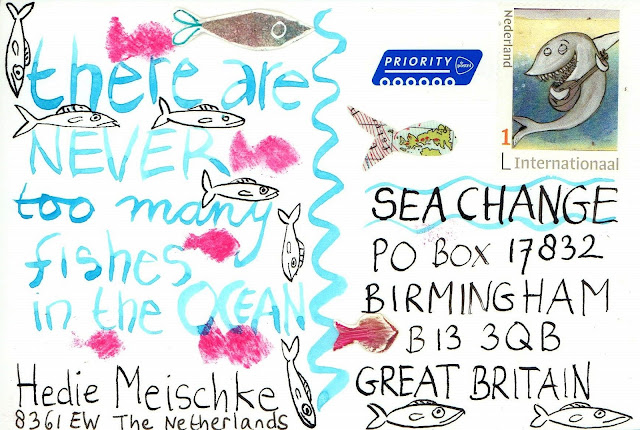 there are
NEVER
too many
fishes
in the OCEAN
Hedie Meischke
8361 EW The Netherlands
PRIORITY
Nederland
1
Internationaal
SEA CHANGE
PO BOX 17832
BIRMINGHAM
B13 3QB
GREAT BRITAIN